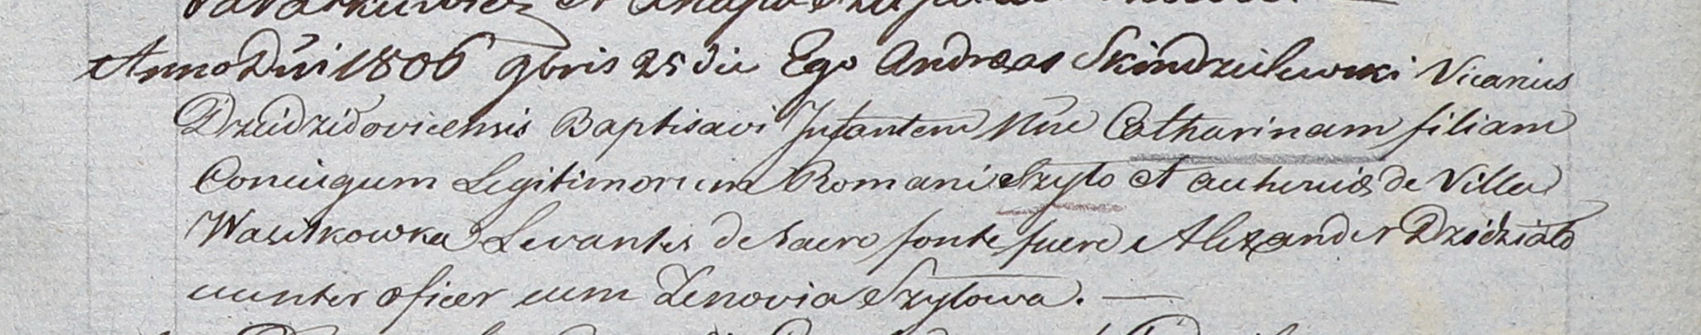 et
Anno Dñi 1806 9bris 25 die Ego Andreas Skindzielewski Vicarius
Dziedziłovicensis Baptisavi Infantem Nñe Catharinam filiam
Coniugum Legitimorum Romani Szyło et de Villa
Wasilkowka Levantes de Sacro fonte fuere Alexander Dzidziało
uunter oficer cum Zenovia Szyłowa. —